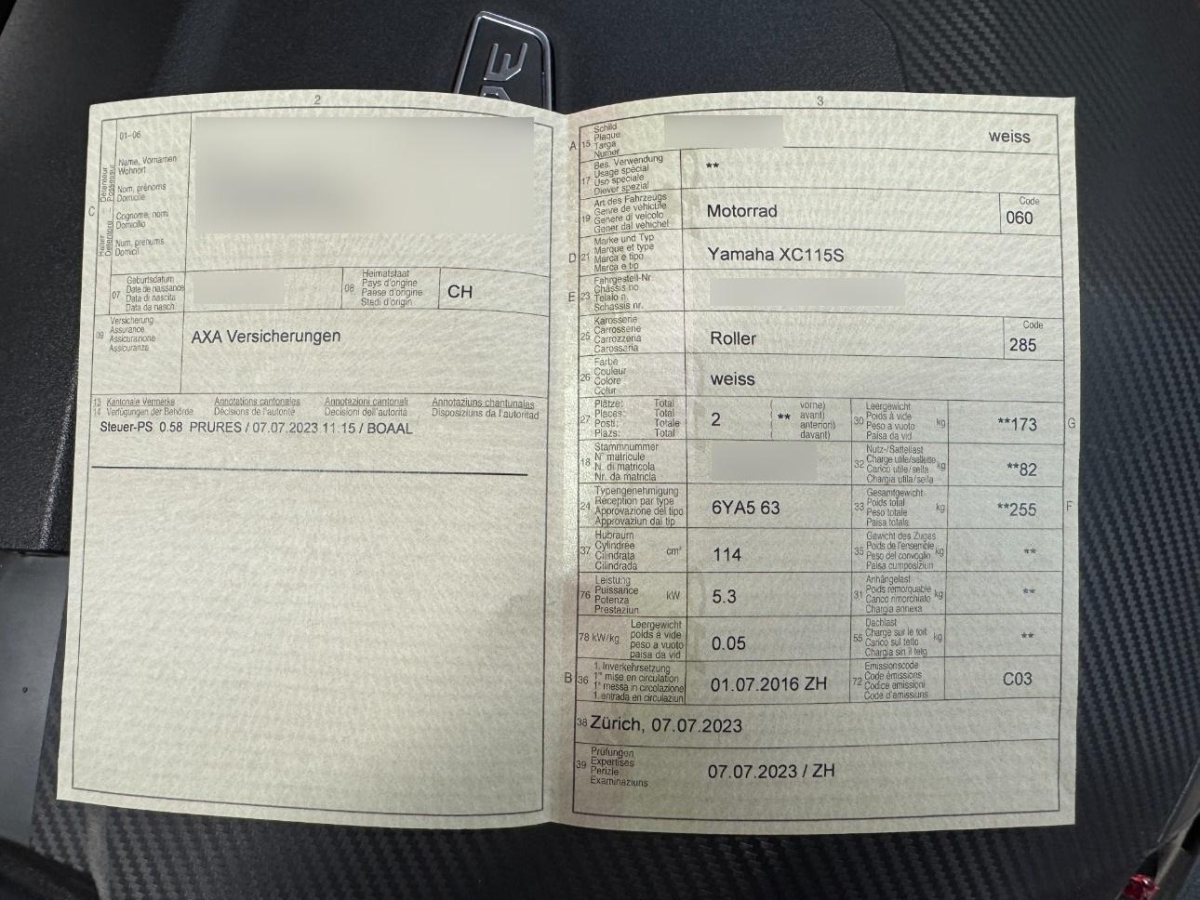 2
01-06
C
Halter
Détenteur
Detentore
Name, Vornamen
Wohnort
Nom, prénoms
Domicile
Cognome, nomi
Domicilio
Num, prenums
Domicil
07
Geburtsdatum
Date de naissance
Data di nascita
Data da nasch.
08
Heimatstaat
Pays d'origine
Paese d'origine
Stadi d'origin
CH
09
Versicherung
Assurance
Assicurazione
Assicuranza
AXA Versicherungen
13 Kantonale Vermerke Annotations cantonales Annotazioni cantonali Annotaziuns chantunalas
14 Verfügungen der Behörde Décisions de l'autorité Decisioni dell'autorità Disposiziuns da l'autoritad
Steuer-PS 0.58 PRURES / 07.07.2023 11:15 / BOAAL
3
A 15
Schild
Plaque
Targa
Numer
weiss
17
Bes. Verwendung
Usage spécial
Uso speciale
Diever spezial
**
19
Art des Fahrzeugs
Genre de véhicule
Genere di veicolo
Gener dal vehichel
Motorrad
Code
060
D 21
Marke und Typ
Marque et type
Marca e tipo
Marca e tip
Yamaha XC115S
E 23
Fahrgestell-Nr.
Châssis no
Telaio n.
Schassis nr.
25
Karosserie
Carrosserie
Carrozzeria
Carossaria
Roller
Code
285
26
Farbe
Couleur
Colore
Colur
weiss
27
Plätze: Total
Places: Total
Posti: Totale
Plazs: Total
2
( vorne)
( ** avant)
( anteriori)
( davant)
30
Leergewicht
Poids à vide
Peso a vuoto
Paisa da vid
kg
**173
G
18
Stammnummer
N° matricule
N. di matricola
Nr. da matricla
32
Nutz-/Sattellast
Charge utile/sellette
Carico utile/sella
Chargia utila/sella
kg
**82
24
Typengenehmigung
Réception par type
Approvazione del tipo
Approvaziun dal tip
6YA5 63
33
Gesamtgewicht
Poids total
Peso totale
Paisa totala
kg
**255
F
37
Hubraum
Cylindrée
Cilindrata
Cilindrada
cm³
114
35
Gewicht des Zuges
Poids de l'ensemble
Peso del convoglio
Paisa cumposiziun
kg
**
76
Leistung
Puissance
Potenza
Prestaziun
kW
5.3
31
Anhängelast
Poids remorquable
Carico rimorchiato
Chargia annexa
kg
**
78 kW/kg
Leergewicht
poids à vide
peso a vuoto
paisa da vid
0.05
55
Dachlast
Charge sur le toit
Carico sul tetto
Chargia sin il tetg
kg
**
B 36
1. Inverkehrsetzung
1re mise en circulation
1a messa in circolazione
1. entrada en circulaziun
01.07.2016 ZH
72
Emissionscode
Code émissions
Codice emissioni
Code d'emissiuns
C03
38 Zürich, 07.07.2023
39
Prüfungen
Expertises
Perizie
Examinaziuns
07.07.2023 / ZH